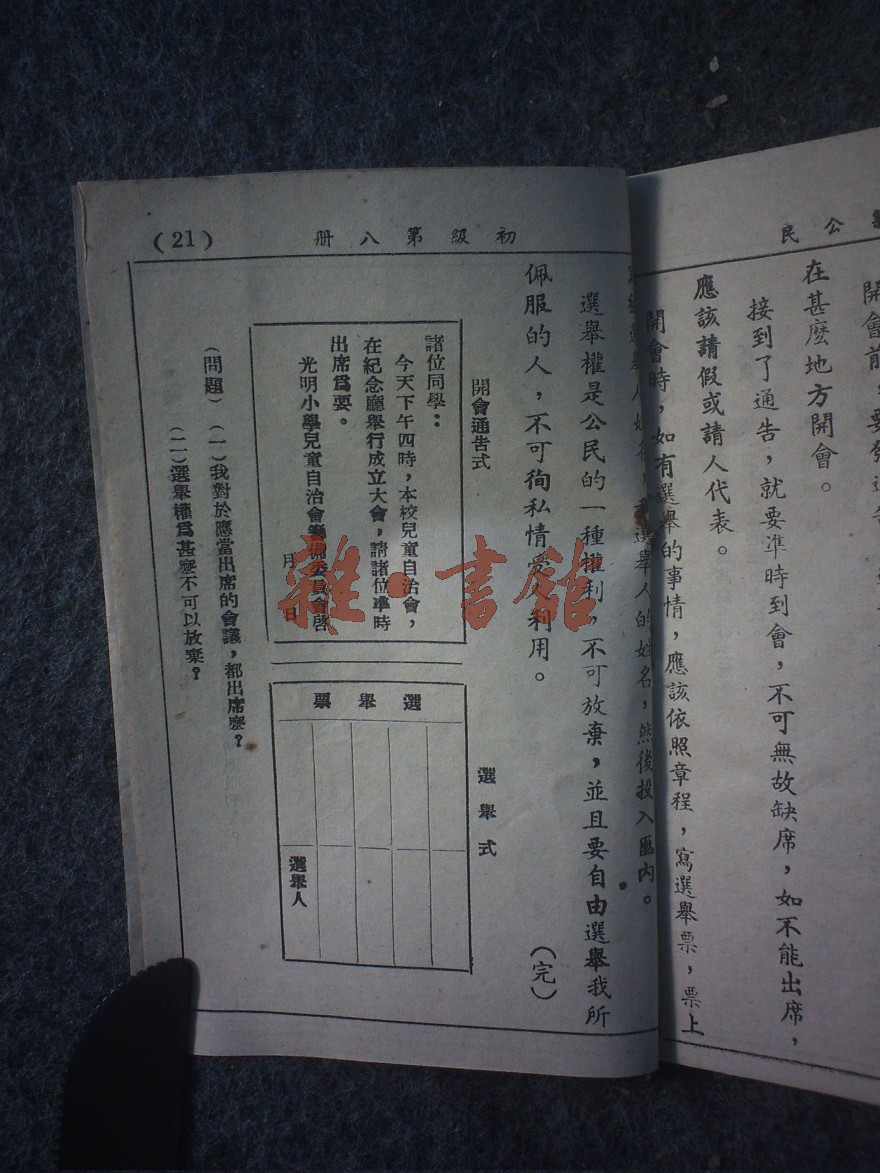 公民
開會前，要發通告
在甚麼地方開會。
接到了通告，就要準時到會，不可無故缺席，如不能出席，
應該請假或請人代表。
開會時，如有選舉的事情，應該依照章程，寫選舉票，票上
選舉人的姓名，然後投入匭內。
初級第八册
(21)
選舉權是公民的一種權利，不可放棄，並且要自由選舉我所
佩服的人，不可徇私情愛利用。
(完)
開會通告式
諸位同學：
今天下午四時，本校兒童自治會，
在紀念廳舉行成立大會，請諸位準時
出席爲要。
光明小學兒童自治會籌備委員會啓
月 日
選舉式
選舉票
選舉人
(問題) (一)我對於應當出席的會議，都出席麽？
(二)選舉權爲甚麽不可以放棄？
雜·書館